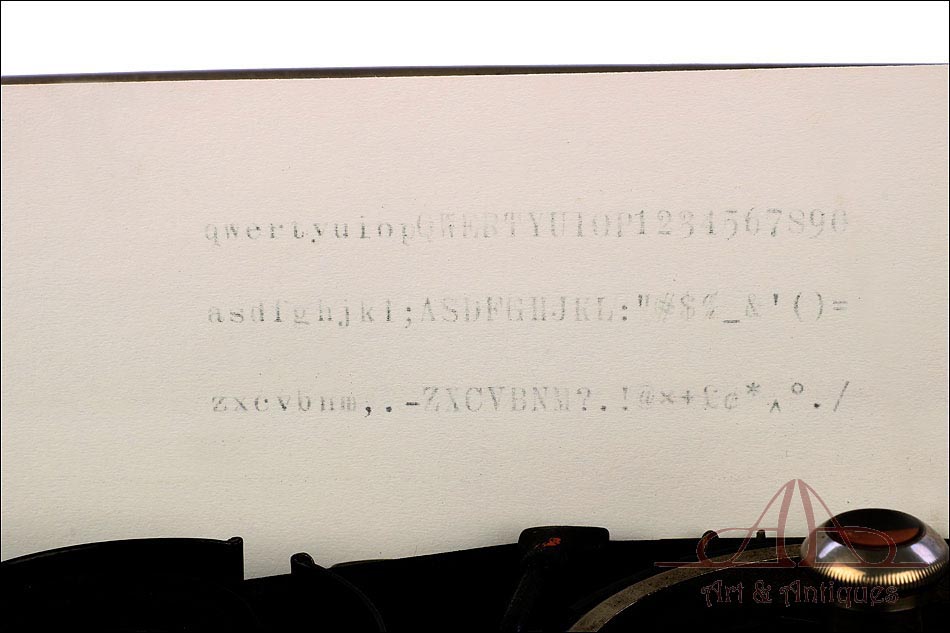 qwertyuiopQWERTYUIOP1234567890
asdfghjkl;ASDFGHJKL:"#$%_&'()=
zxcvbnm,.-ZXCVBNM?.!@×+£¢*^°./
Art & Antiques